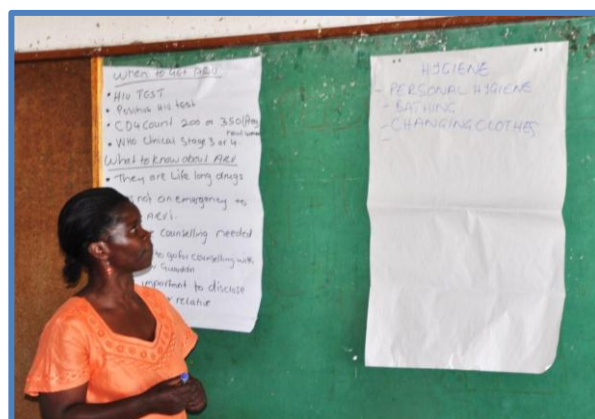 When to Get ARV
• HIV TEST
• Positive HIV test
• CD4 Count 200 or 350
• WHO Clinical Stage 3 or 4
What to know about ARV
• They are Life long drugs
not an emergency to
counselling needed
to go for counselling with
important to disclose
HYGIENE
- PERSONAL HYGIENE
- BATHING
- CHANGING CLOTHES
-